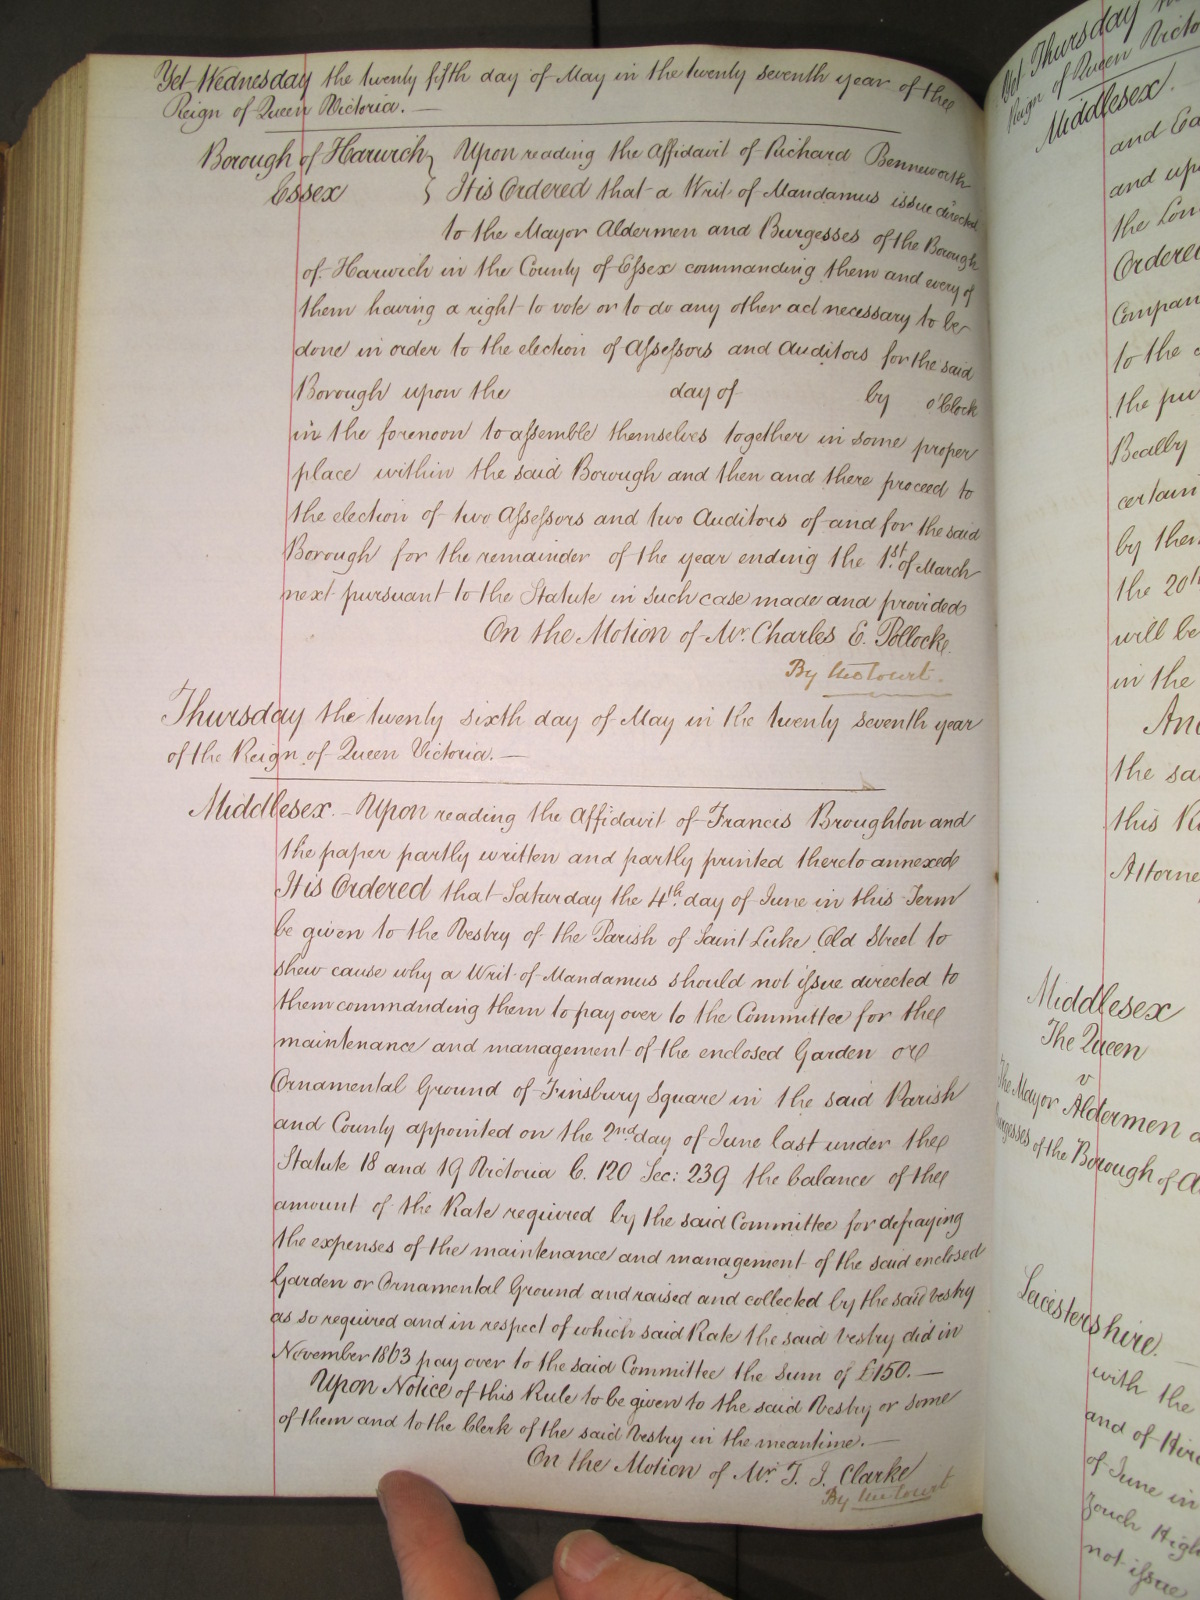 Yet Wednesday the twenty fifth day of May in the twenty seventh year of the
Reign of Queen Victoria. —
Borough of Harwich } Upon reading the Affidavit of Richard Benneworth
Essex } It is Ordered that a Writ of Mandamus issue directed
to the Mayor Aldermen and Burgesses of the Borough
of Harwich in the County of Essex commanding them and every of
them having a right to vote or to do any other act necessary to be
done in order to the election of Assessors and Auditors for the said
Borough upon the day of by o'Clock
in the forenoon to assemble themselves together in some proper
place within the said Borough and then and there proceed to
the election of two Assessors and two Auditors of and for the said
Borough for the remainder of the year ending the 1st of March
next pursuant to the Statute in such case made and provided
On the Motion of Mr. Charles E. Pollocke.
By the Court.
Thursday the twenty sixth day of May in the twenty seventh year
of the Reign of Queen Victoria. —
Middlesex. – Upon reading the Affidavit of Francis Broughton and
the paper partly written and partly printed thereto annexed
It is Ordered that Saturday the 4th day of June in this Term
be given to the Vestry of the Parish of Saint Luke Old Street to
shew cause why a Writ of Mandamus should not issue directed to
them commanding them to pay over to the Committee for the
maintenance and management of the enclosed Garden or
Ornamental Ground of Finsbury Square in the said Parish
and County appointed on the 2nd day of June last under the
Statute 18 and 19 Victoria C. 120 Sec: 239 the balance of the
amount of the Rate required by the said Committee for defraying
the expenses of the maintenance and management of the said enclosed
Garden or Ornamental Ground and raised and collected by the said vestry
as so required and in respect of which said Rate the said Vestry did in
November 1863 pay over to the said Committee the sum of £150. —
Upon Notice of this Rule to be given to the said Vestry or some
of them and to the Clerk of the said Vestry in the meantime. —
On the Motion of Mr. T. J. Clarke
By the Court
Yet Thursday
Reign of Queen Victo
Middlesex.
and
and up
the
Ordered
Compan
to the
the pu
Bealby
certain
by them
the 20th
will be
in the
And
the sa
this
Attorne
Middlesex
The Queen
v
The Mayor Aldermen
Burgesses of the Borough of
Leicestershire.
with the
and of
of June in
Zouch High
not issue